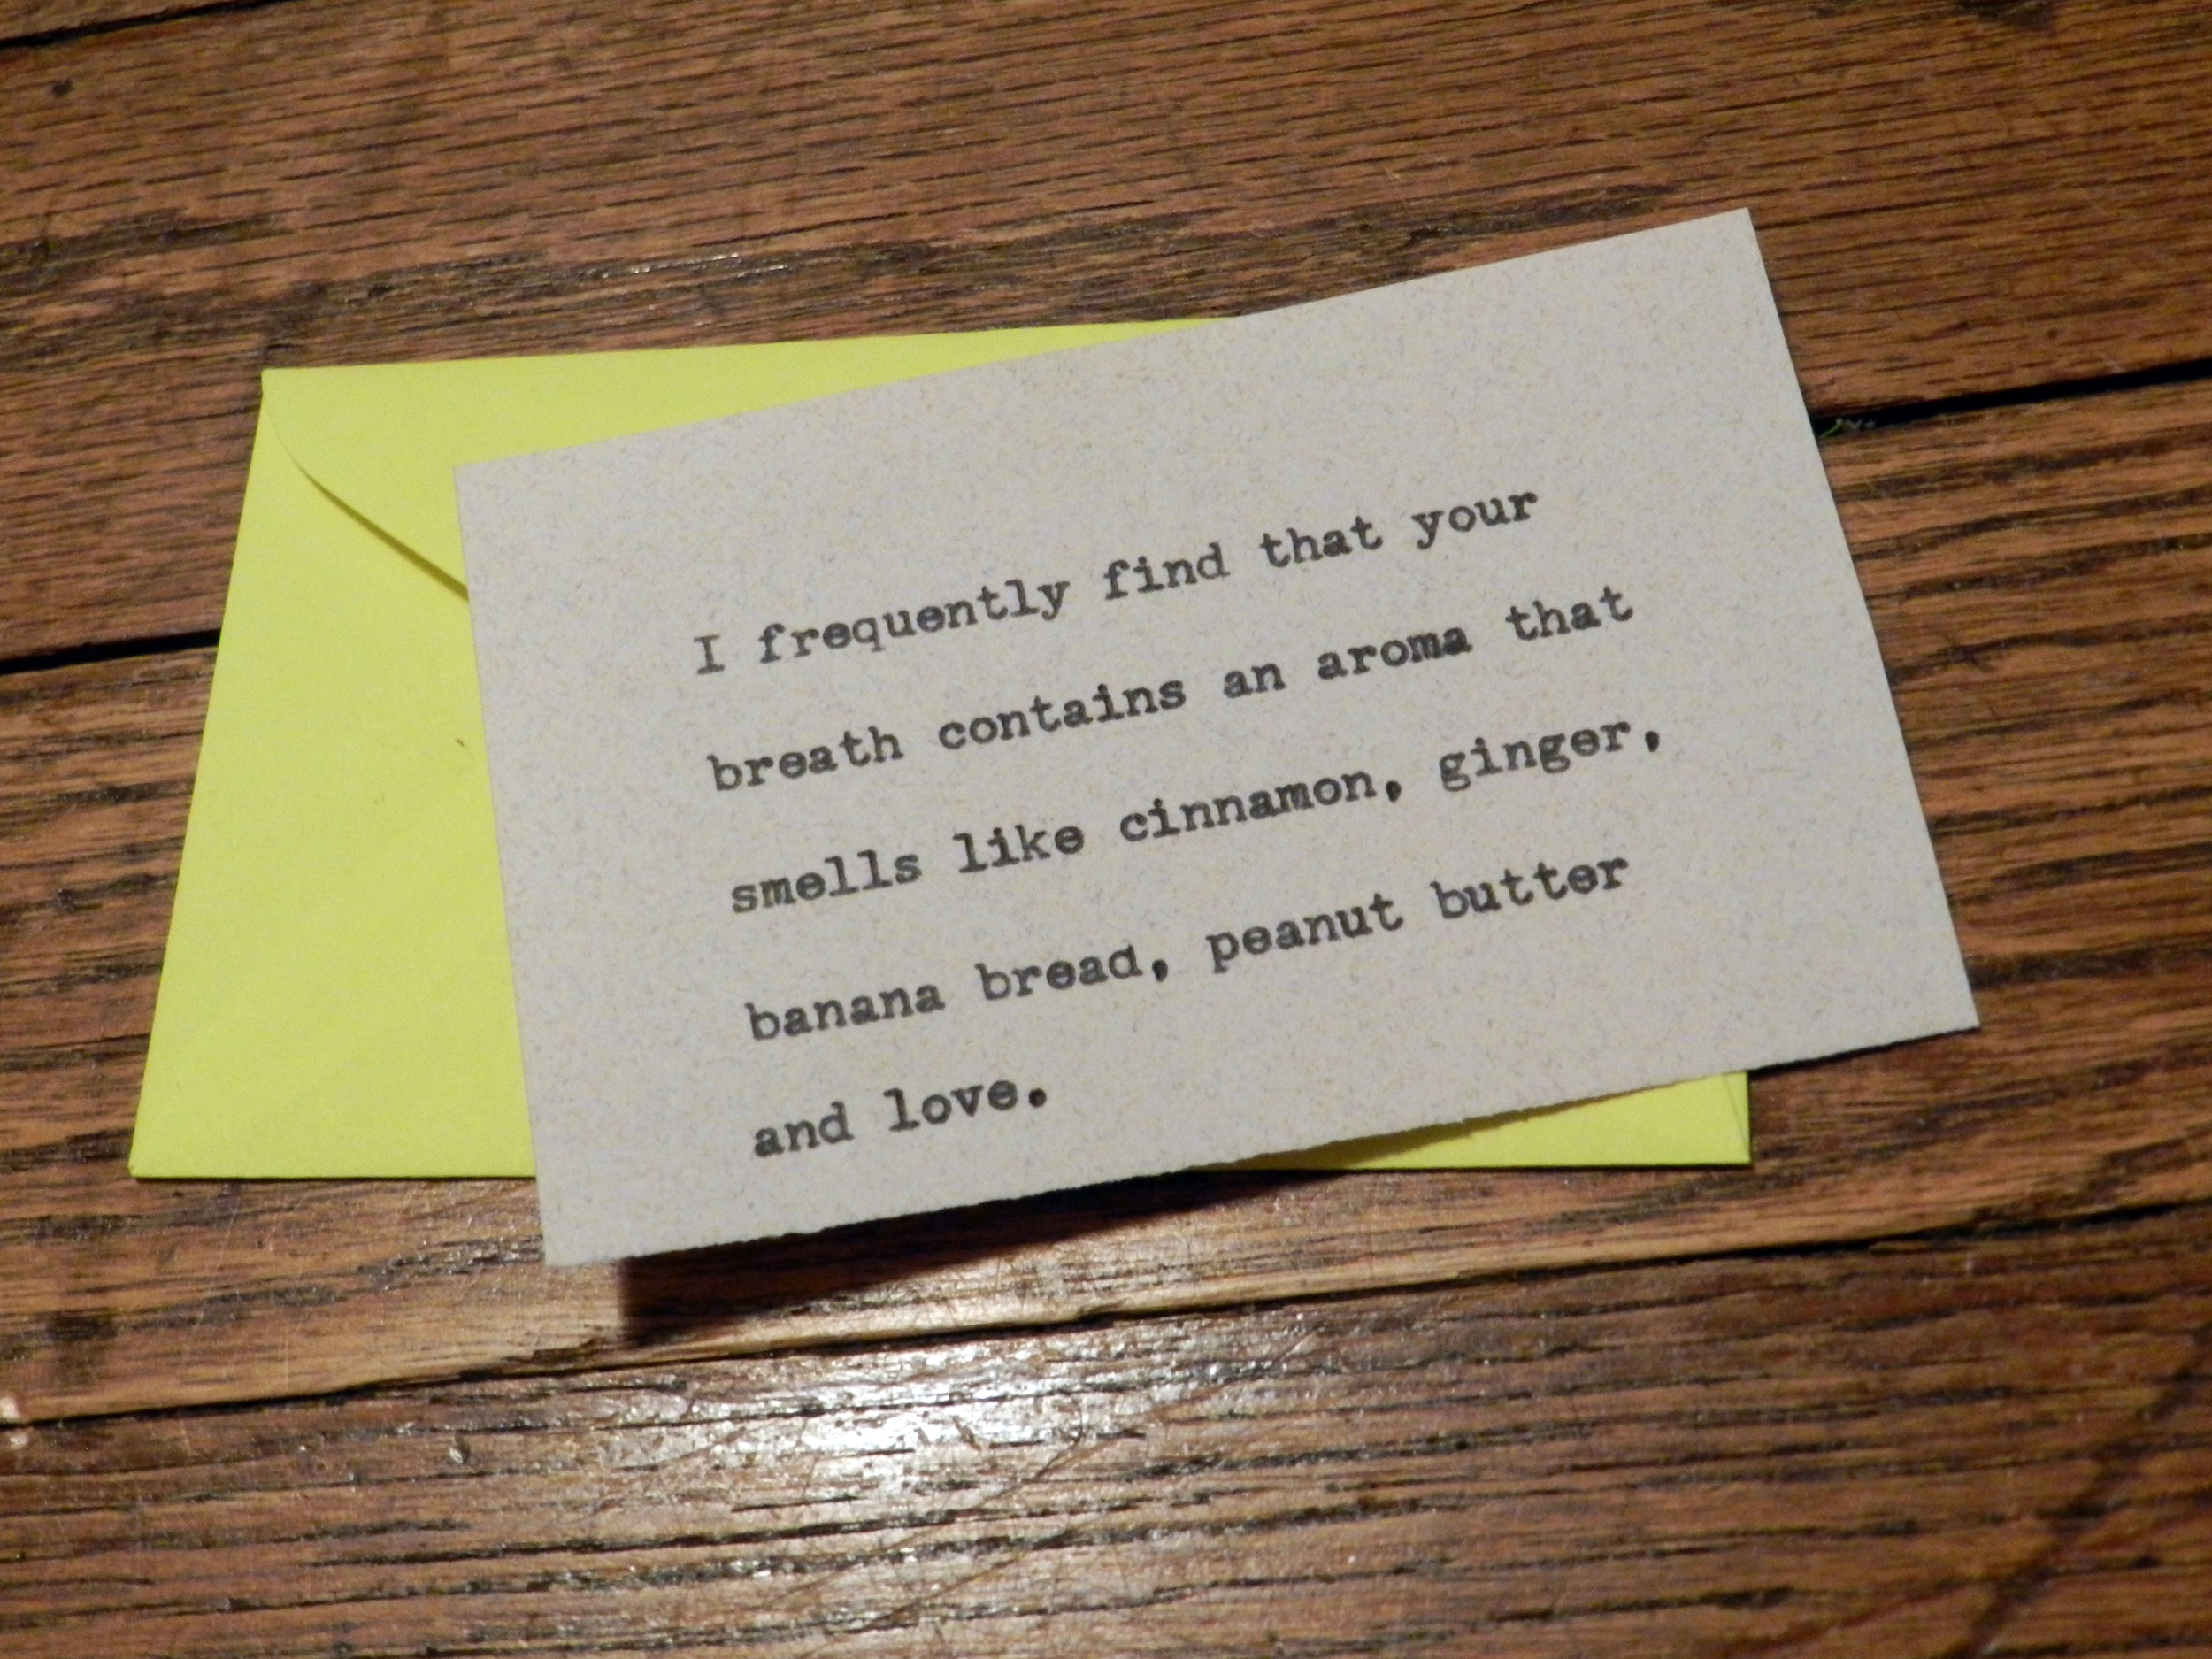 I frequently find that your
breath contains an aroma that
smells like cinnamon, ginger,
banana bread, peanut butter
and love.